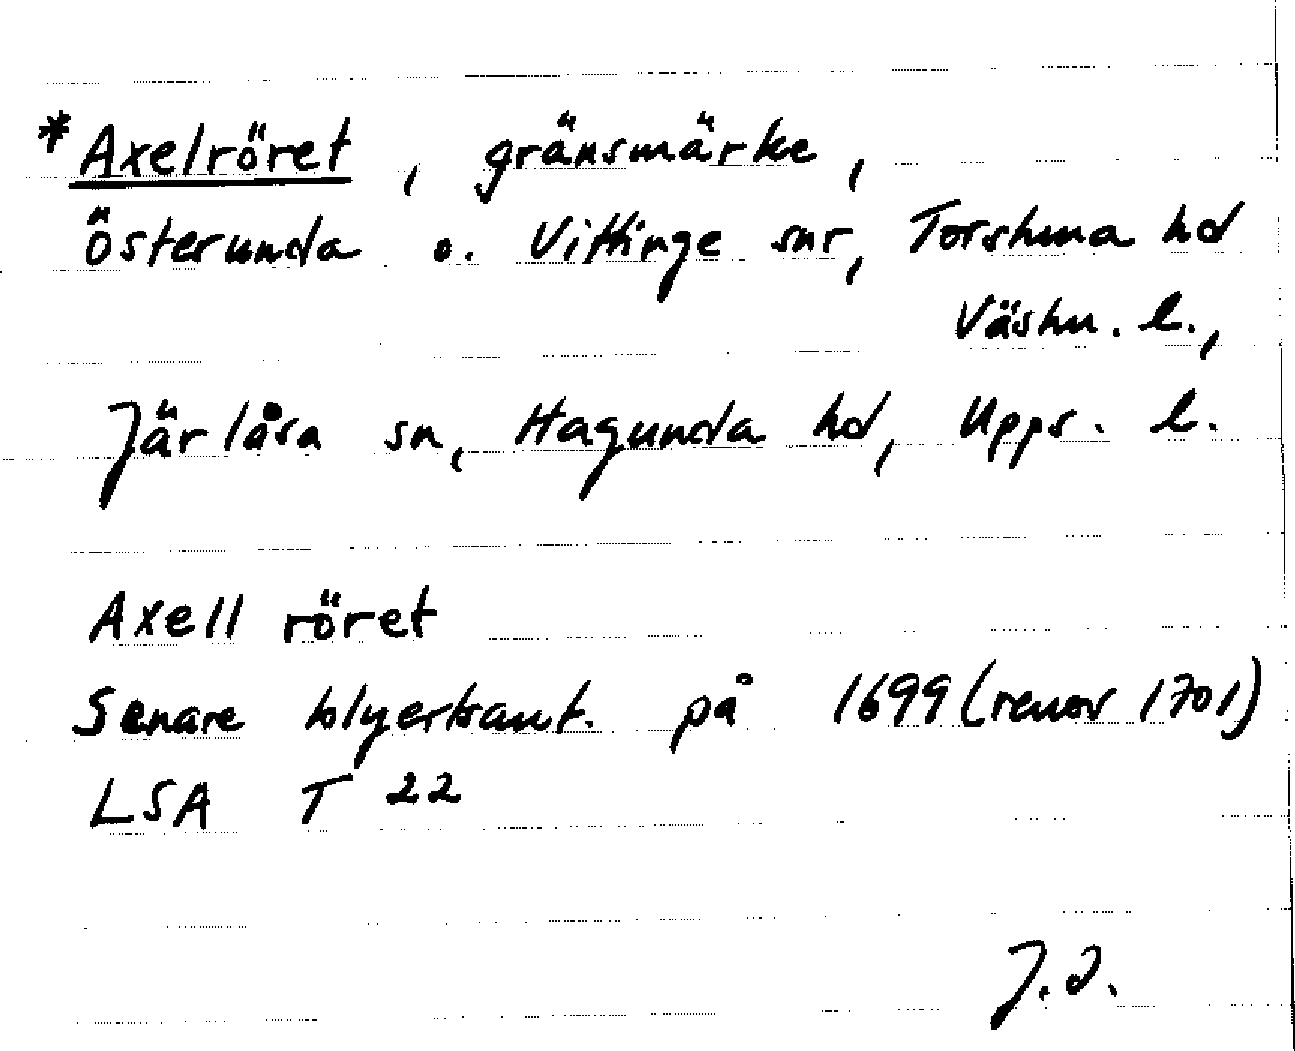 *Axelröret, gränsmärke,
Österunda o. Vittinge snr, Torstuna hd
Västm. l.,
Järlåsa sn, Hagunda hd, Upps. l.
Axell röret
Senare blyertsant. på 1699 (renov 1701)
LSA T 22